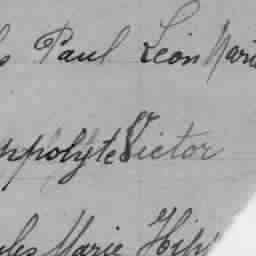 Paul Léon Marie
ppolyte Victor
les Marie Hipp